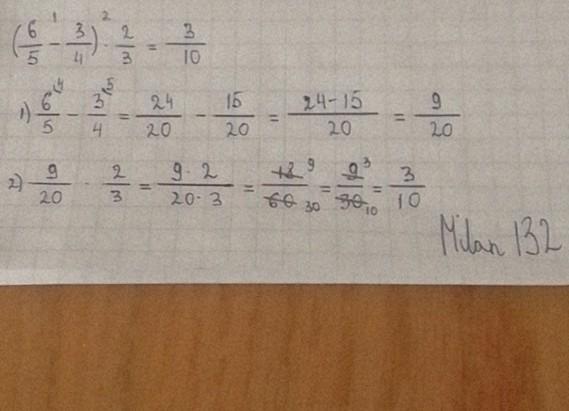 (6/5 -¹ 3/4) ·² 2/3 = 3/10
1) 6⁴/5 - 3⁵/4 = 24/20 - 15/20 = 24-15/20 = 9/20
2) 9/20 · 2/3 = 9·2/20·3 = 18 9/60 30 = 9 3/30 10 = 3/10
Milan 132